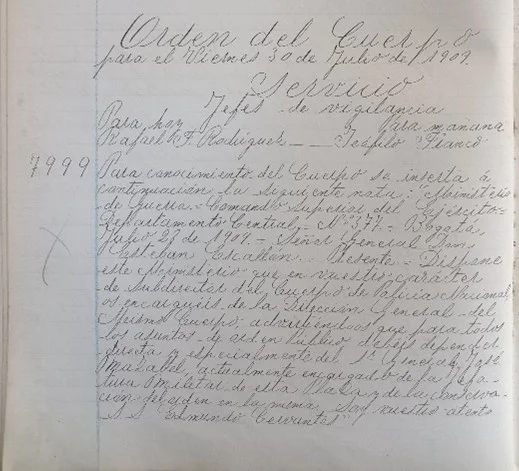 Orden del Cuerpo
para el Viernes 30 de Julio de 1909.
Servicio
Jefes de vigilancia
Para hoy Para mañana
Rafael F. Rodriguez — Teófilo Franco
7999 Para conocimiento del Cuerpo se inserta á
continuación la siguiente nota: "Ministerio
de Guerra - Comando Superior del Ejército -
Departamento Central - Nº 377 - Bogotá,
Julio 27 de 1909. - Señor General Don
Esteban Escallón. Presente - Dispone
este Ministerio que en vuestro carácter
de Subdirector del Cuerpo de Policía Nacional,
os encarguéis de la Dirección General del
mismo Cuerpo; advirtiendoos que para todos
los asuntos de orden público debéis depender
directa y especialmente del Sr. General José
actualmente encargado de la Jefa-
tura Militar de esta plaza y de la conserva-
ción del orden en la misma. Soy vuestro atento
S. S. Edmundo Cervantes"